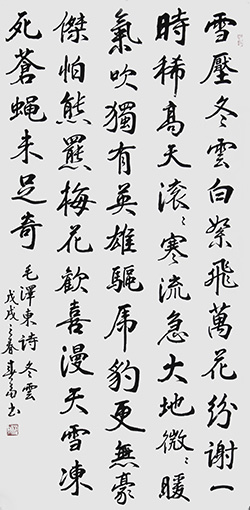 雪壓冬雲白絮飛萬花紛謝一
時稀高天滾〻寒流急大地微〻暖
氣吹獨有英雄驅虎豹更無豪
傑怕熊羆梅花歡喜漫天雪凍
死蒼蠅未足奇
毛澤東詩冬雲
戊戌之春書